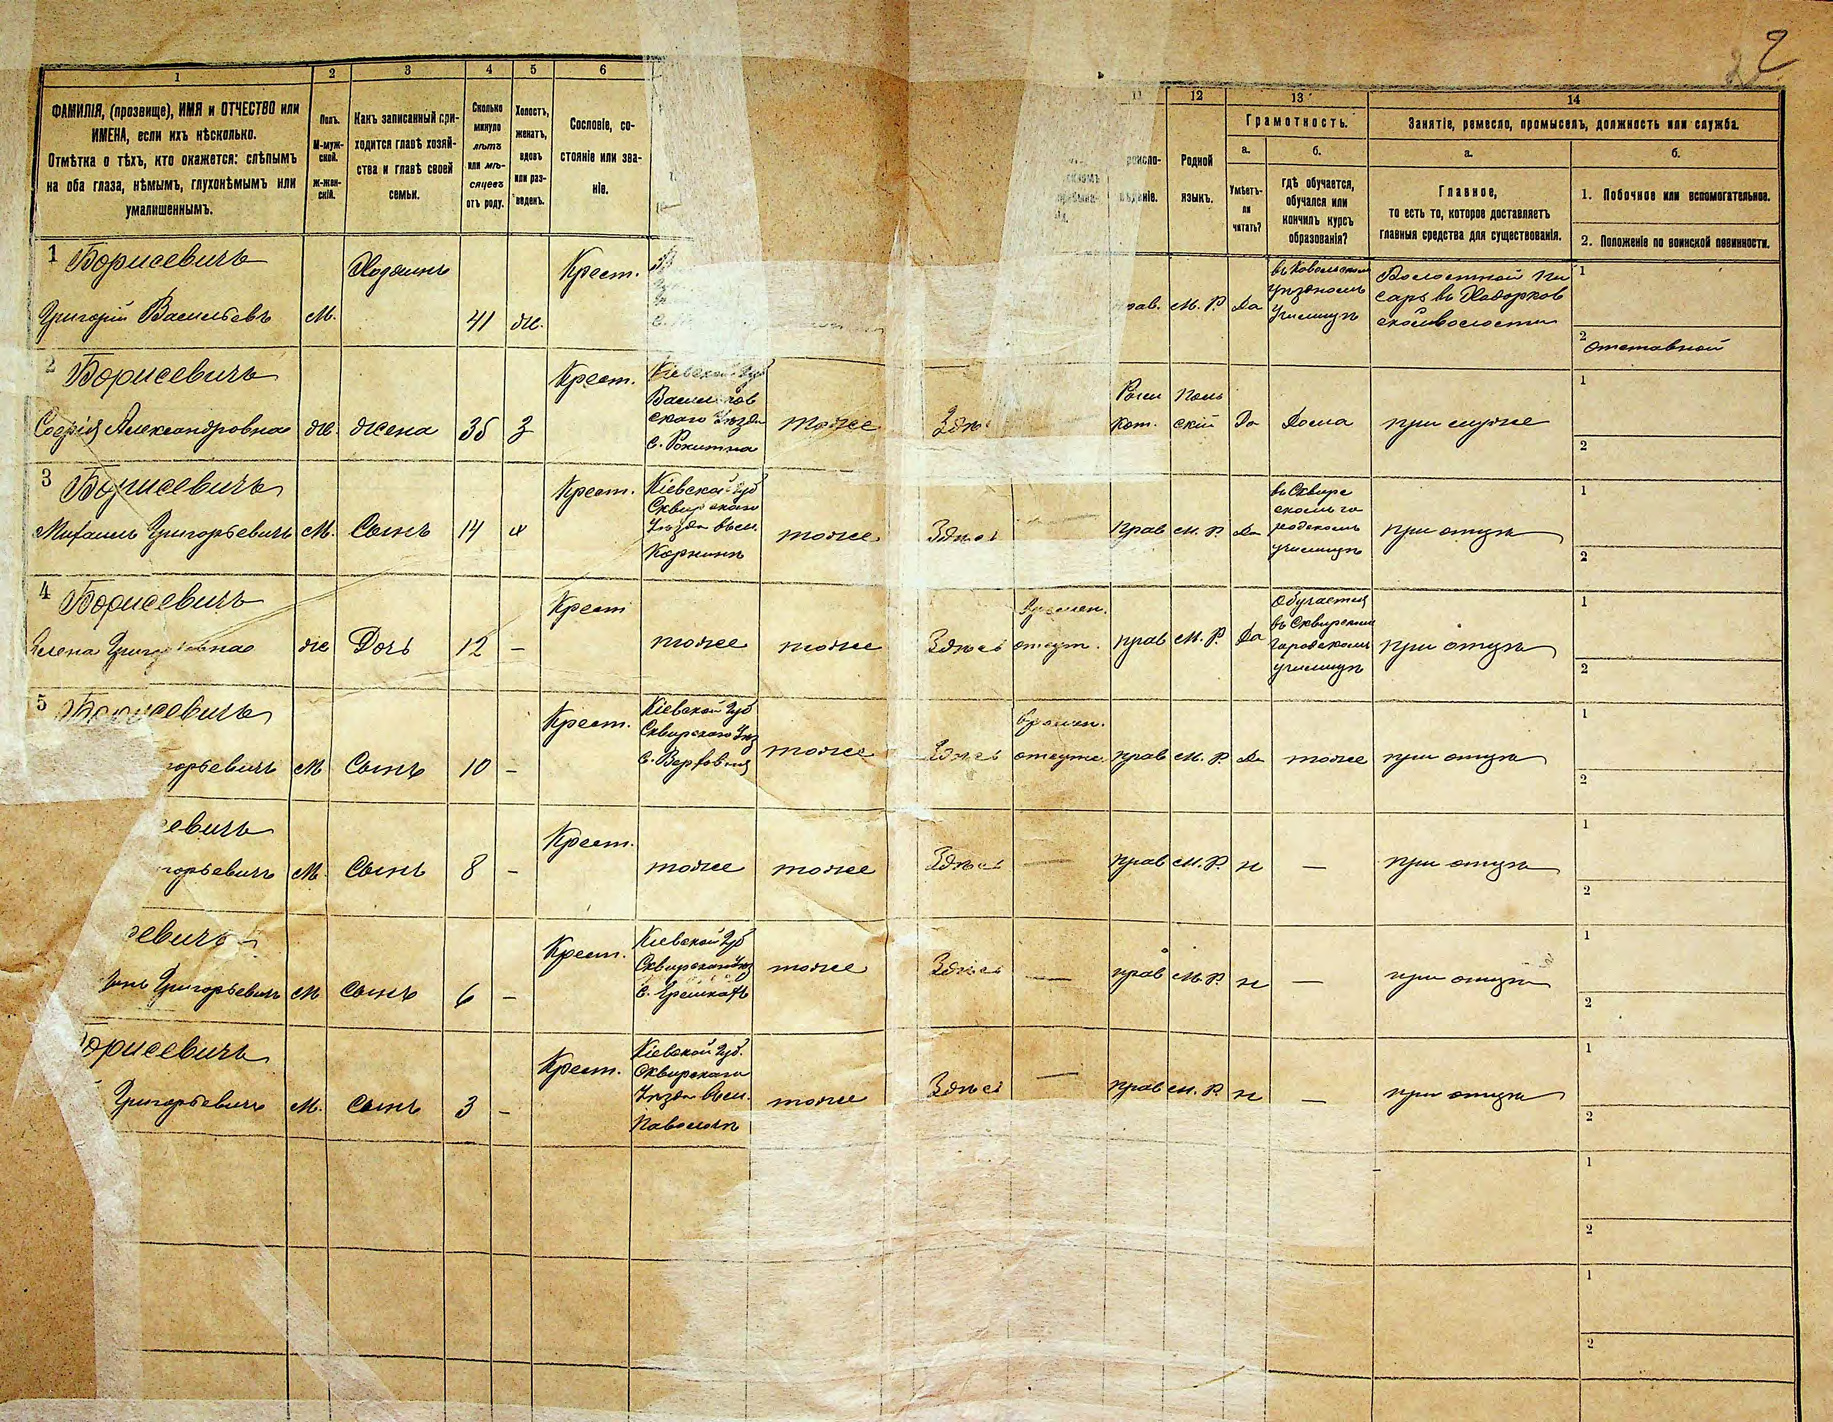 2
1
2
3
4
5
6
11
12
13
14
ФАМИЛІЯ, (прозвище), ИМЯ и ОТЧЕСТВО или
ИМЕНА, если ихъ нѣсколько.
Отмѣтка о тѣхъ, кто окажется: слѣпымъ
на оба глаза, нѣмымъ, глухонѣмымъ или
умалишеннымъ.
Полъ.
М-муж-
ской.
ж-жен-
скій.
Какъ записанный при-
ходится главѣ хозяй-
ства и главѣ своей
семьи.
Сколько
минуло
лѣтъ
или мѣ-
сяцевъ
отъ роду.
Холостъ,
женатъ,
вдовъ
или раз-
веденъ.
Сословіе, со-
стояніе или зва-
ніе.
Родной
языкъ.
Грамотность.
а.
б.
Умѣетъ-
ли
читать?
гдѣ обучается,
обучался или
кончилъ курсъ
образованія?
Занятіе, ремесло, промыселъ, должность или служба.
а.
б.
Главное,
то есть то, которое доставляетъ
главныя средства для существованія.
1. Побочное или вспомогательное.
2. Положеніе по воинской повинности.
1 Борисевичъ
Григорій Васильевъ
М.
Хозяинъ
41
ж.
Крест.
М. Р.
Да
училищѣ
Волостной Пи
сарь въ Ходорков
ской волости
1
2
отставной
2 Борисевичъ
Софія Александровна
ж.
жена
35
З
Крест.
Кіевской Губ
ского Уѣзда
с. Рокитна
тоже
Рим
Кат.
Поль
скій
Да
Дома
при мужѣ
1
2
3 Борисевичъ
Михаилъ Григорьевичъ
М.
Сынъ
14
х
Крест.
Кіевской Губ
Сквирскаго
Уѣзда въ м.
Корнинѣ
тоже
Здѣсь
—
прав
М. Р.
Да
въ Сквир
скомъ го
родскомъ
училищѣ
при отцѣ
1
2
4 Борисевичъ
ж
Дочь
12
—
Крест
тоже
тоже
Здѣсь
отсут.
прав
М. Р.
Да
Обучается
въ Сквирском
Городскомъ
училищѣ
при отцѣ
1
2
5
севичъ
горьевичъ
М
Сынъ
10
—
Крест.
Кіевской Губ
Сквирскаго Уѣз
с. Верховня
тоже
Здѣсь
времен.
отсутс.
прав
М. Р.
Да
тоже
при отцѣ
1
2
севичъ
горьевичъ
М.
Сынъ
8
—
Крест.
тоже
тоже
Здѣсь
—
прав
М. Р.
н
—
при отцѣ
1
2
севичъ
Григорьевичъ
М
сынъ
6
—
Крест.
Кіевской Губ
с. Ерчикахъ
тоже
Здѣсь
—
прав
М. Р.
н
—
при отцѣ
1
2
орисевичъ
Григорьевичъ
М.
сынъ
3
—
Крест.
Кіевской Губ.
Сквирскаго
Уѣзда въ м.
Паволочѣ
тоже
Здѣсь
—
прав
М. Р.
н
—
при отцѣ
1
2
1
2
1
2